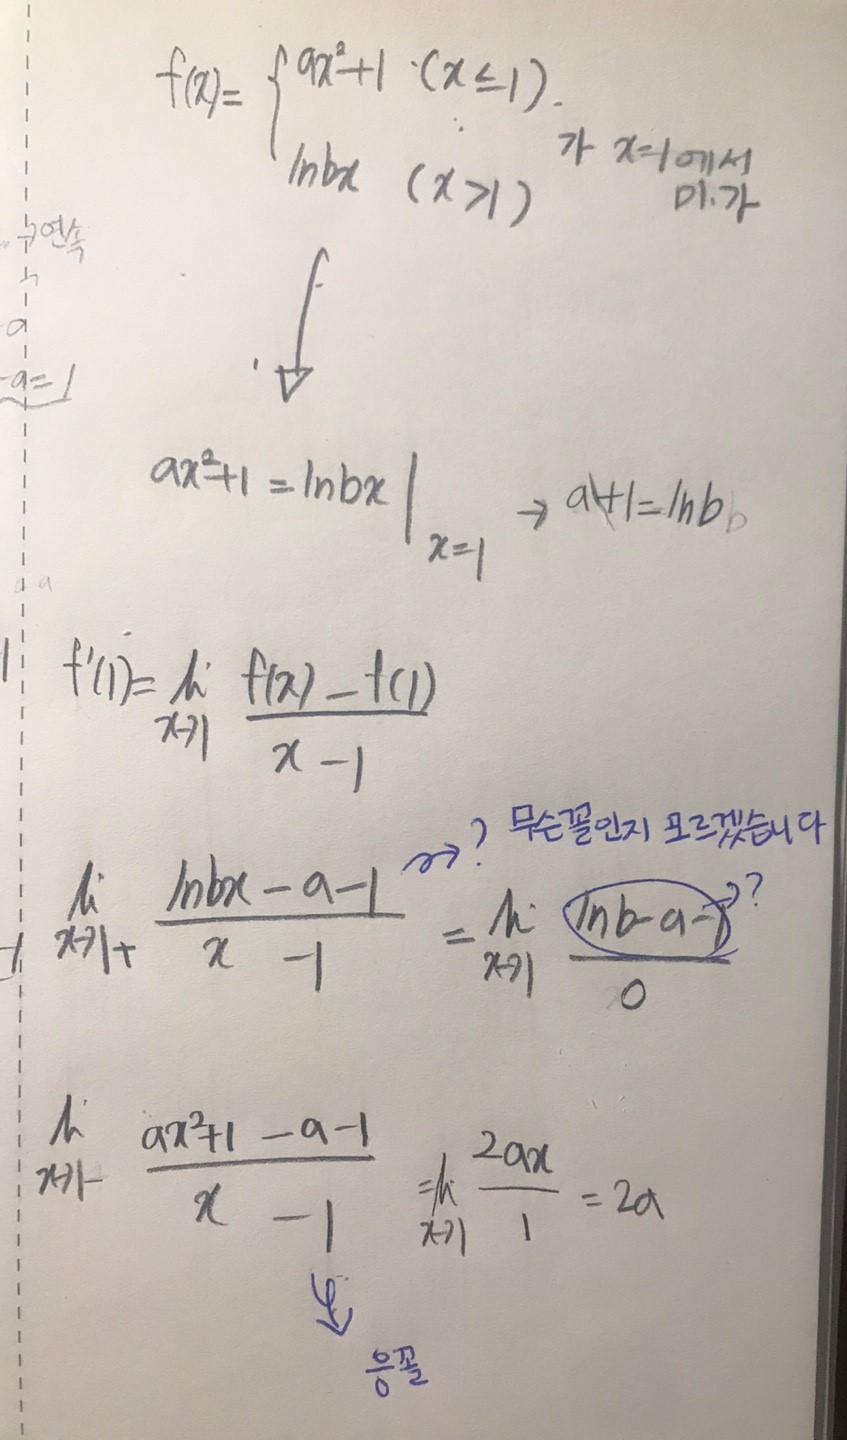 f(x)= { ax²+1 (x≤1).
lnbx (x>1)
가 x=1에서
미.가
누연속
a
-a=1
ax²+1 = lnbx |x=1 → a+1=lnb
f'(1)= lim x→1 f(x) - f(1) / x - 1
~> ? 무슨꼴인지 모르겠습니다
lim x→1+ lnbx - a - 1 / x - 1 = lim x→1 lnb-a-1 / 0 → ?
lim x→1- ax²+1 - a - 1 / x - 1 = lim x→1 2ax / 1 = 2a
응꼴